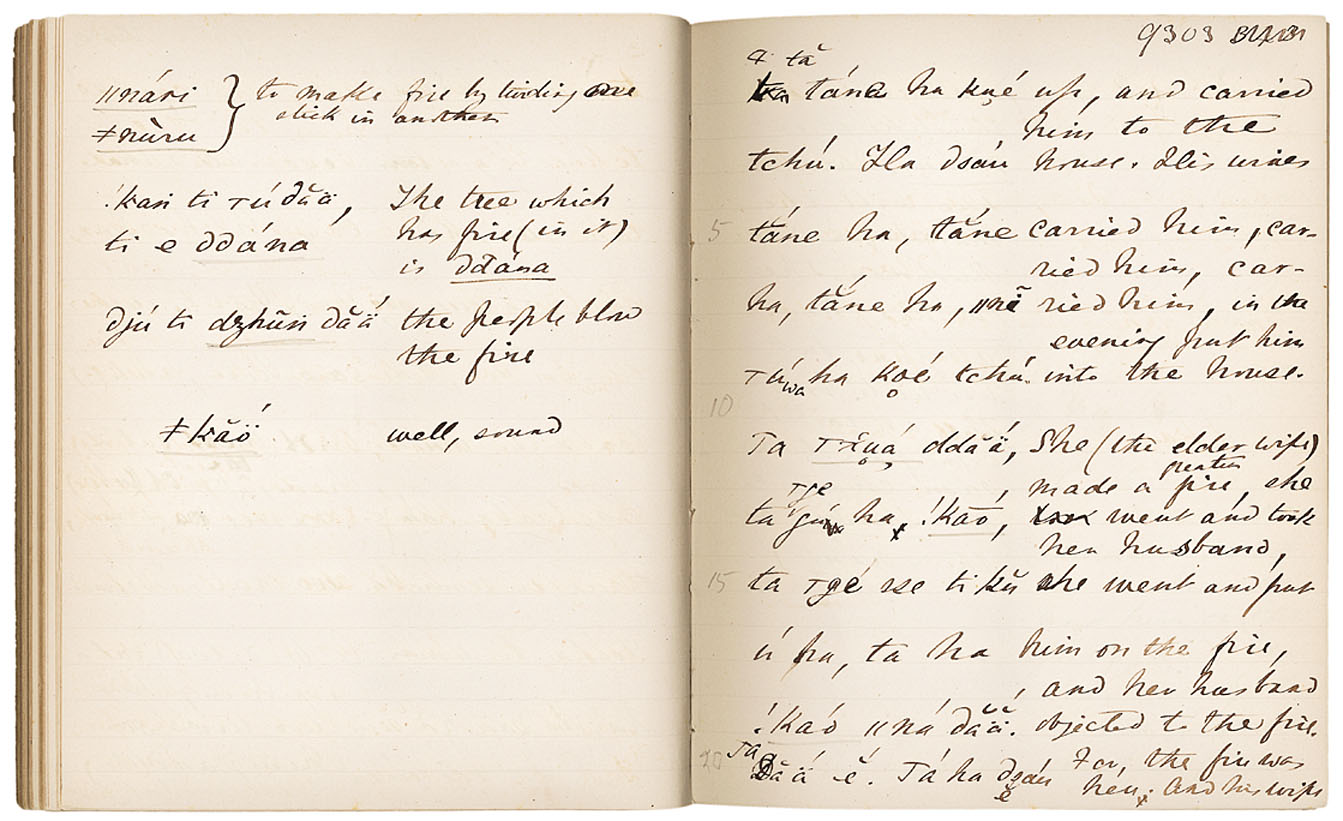 ǁnári } to make fire by twirling one
ǂnùru stick in another
!kaṅ ti ꞇú đăä, The tree which
ti e đđáná has fire (in it)
is đđána
djú ti dzhŭṅ đắä the people blow
the fire
ǂkăö́ well, sound
9303
& tă
táne ha kọé up, and carried
him to the
tchú. Ha dsáu house. His wives
5 táne ha, tắne carried him, car-
ried him, car-
ha, tắne ha, ǁnĕ̄ ried him, in the
evening put him
ꞇúwa ha kọé tchú. into the house.
10
Ta đđăä́, She (the elder wife)
greater
ꞇge made a fire, she
ta ha, !kāó, went and took
her husband,
15 ta ꞇgé se ti kŭ she went and put
ú ha, ta ha him on the fire,
and her husband
!káó ǁná đắä. objected to the fire.
20 Ta
đăä ĕ́. Tá ha dsáu For, the fire was
ĕ hers. And his wife